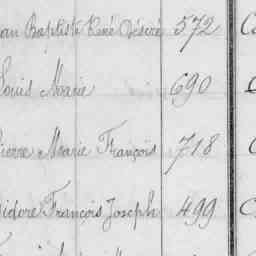 ean Baptiste René Désiré 572
Louis Marie 690
Pierre Marie François 718
sidore François Joseph 499